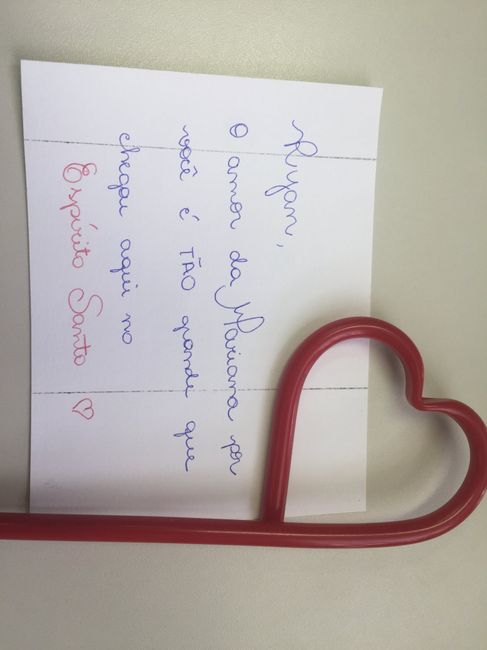 Ryan,
O amor da Mariana por
você é TÃO grande que
chegou aqui no
Espírito Santo ♡